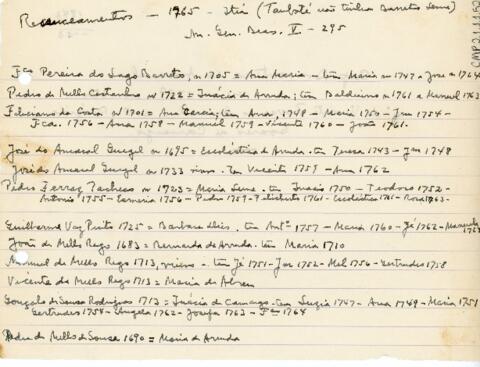 Recenseamentos — 1765 - Itú (Taubaté não tinha Barretos Leme)
An. Gen. Bras. V - 295
CMP 2.1.1.1.52
Fco Pereira do Lago Barreto, n 1705 = Ana Maria - tem Maria n 1747 - Jose n 1764
Pedro de Mello Castanho n 1722 = Inácia de Arruda; tem Balduino n 1761 e Manuel 1763
Feliciano da Costa n 1701 = Ana Garcia; tem Ana, 1748 - Maria 1750 - Jm 1754 -
Fca. 1756 - Ana 1758 - Manuel 1759 - Vicente 1760 - João 1761.
José do Amaral Gurgel n 1695 = Escolástica de Arruda. tem Tereza 1743 - Jm 1748
José do Amaral Gurgel n 1733 viuvo. tem Vicente 1759 - Ana 1762
Pedro Ferraz Pacheco n 1723 = Maria Leme. tem Inácio 1750 - Teodoro 1752 -
Antonio 1755 - 1756 - Pedro 1759 - Felisberto 1761 - Escolástica 1765 - Rosa 1763 -
Guilherme Vaz Pinto 1725 = Barbara tem Anto 1757 - Maria 1760 - Jé 1762 - Manuela 1763
João de Mello Rego 1683 = Bernarda de Arruda. tem Maria 1710
Manuel de Mello Rego 1713, viuvo - tem Jé 1751 - Joa 1752 - Mel 1756 - Gertrudes 1758
Vicente de Mello Rego 1713 = Maria de
Gonçalo de Souza Rodrigues 1713 = Inácia de Camargo. tem Luzia 1747 - Ana 1749 - Maria 1751
Gertrudes 1754 - Angela 1762 - Josefa 1763 - Fco 1764
Pedro de Mello de Souza 1690 = Maria de Arruda